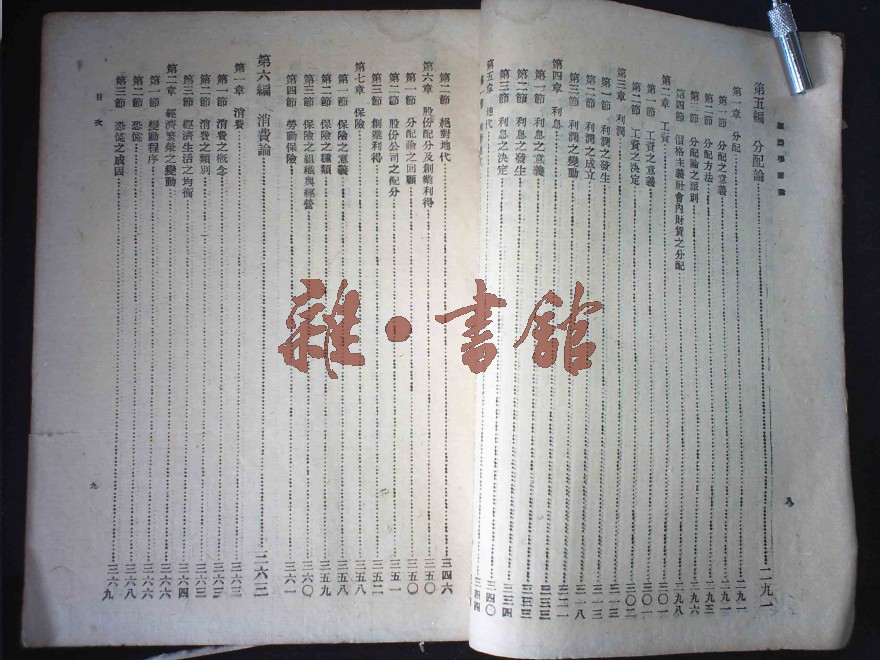 第五編 分配論 二九一
第一章 分配 二九一
第一節 分配之意義 二九一
第二節 分配方法 二九五
第三節 分配論之派別 二九六
第四節 價格主義社會內財貨之分配 二九八
第二章 工資 三〇一
第一節 工資之意義 三〇一
第二節 工資之決定 三〇二
第三章 利潤 三一三
第一節 利潤之發生 三一三
第二節 利潤之成立
第三節 利潤之變動 三一八
第四章 利息
第一節 利息之意義
第二節 利息之發生
第三節 利息之決定 三三四
第五章 地代 三四〇
八
第二節 絕對地代 三四六
第六章 股份配分及創業利得 三五〇
第一節 分配論之回顧 三五〇
第二節 股份公司之配分 三五一
第三節 創業利得 三五二
第七章 保險 三五八
第一節 保險之意義 三五八
第二節 保險之種類 三五九
第三節 保險之組織與經營 三六〇
第四節 勞動保險 三六一
第六編 消費論 二六三
第一章 消費 三六三
第一節 消費之概念 三六三
第二節 消費之類別 三六三
第三節 經濟生活之均衡 三六四
第二章 經濟繁榮之變動 三六六
第一節 變動程序 三六六
第二節 恐慌 三六八
第三節 恐慌之成因 三六九
目次
九
雜·書館